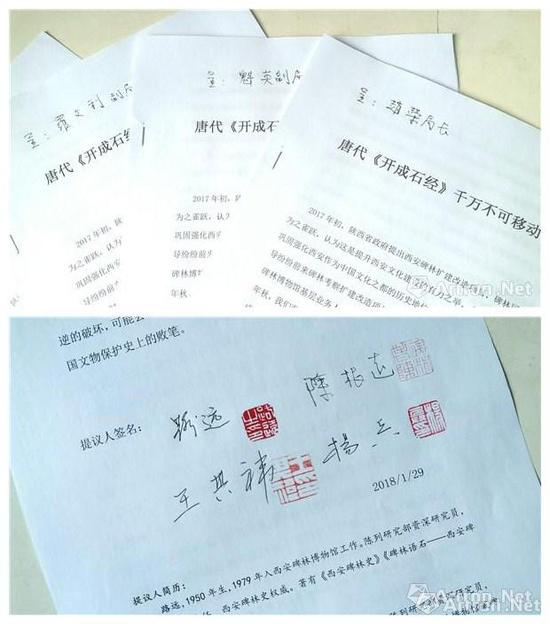 呈：罗文利副局
唐代《开成石经
2017年初，陕
为之雀跃，认为
巩固强化西
导纷纷前
呈：魁英副局
唐代《开成石
2017年初，陕
为之雀跃，认为
巩固强化西安
导纷纷前来
碑林博物
年秋，
呈：赵荣局长
唐代《开成石经》千万不可移动
2017年初，陕西省政府提出西安碑林扩建改造
为之雀跃，认为这是提升西安文化建设
巩固强化西安作为中国文化之都的历史地位
导纷纷前来碑林考察扩建改造项
碑林博物馆基层业务人
年秋，我们
Arron.Net
逆的破坏，可能会
国文物保护史上的败笔。
提议人签名：
路远
陈根远
王其祎
杨兵
2018/1/29
提议人简历：
路远，1950年生，1979年入西安碑林博物馆工作。陈列研究部资深研究员，
西安碑林史权威。著有《西安碑林史》《碑林语石——西安碑
Arron.Net